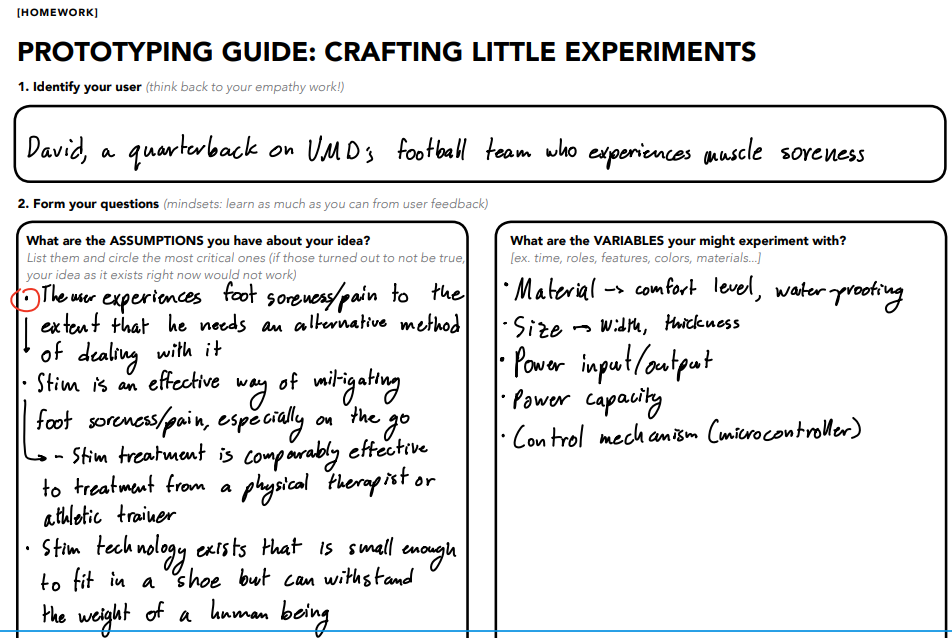 [HOMEWORK]
PROTOTYPING GUIDE: CRAFTING LITTLE EXPERIMENTS
1. Identify your user (think back to your empathy work!)
David, a quarterback on UMD's football team who experiences muscle soreness
2. Form your questions (mindsets: learn as much as you can from user feedback)
What are the ASSUMPTIONS you have about your idea?
List them and circle the most critical ones (if those turned out to not be true,
your idea as it exists right now would not work)
• The user experiences foot soreness/pain to the
extent that he needs an alternative method
of dealing with it
• Stim is an effective way of mitigating
foot soreness/pain, especially on the go
→ - Stim treatment is comparably effective
to treatment from a physical therapist or
athletic trainer
• Stim technology exists that is small enough
to fit in a shoe but can withstand
the weight of a human being
What are the VARIABLES your might experiment with?
[ex. time, roles, features, colors, materials...]
• Material → comfort level, water-proofing
• Size → width, thickness
• Power input/output
• Power capacity
• Control mechanism (microcontroller)